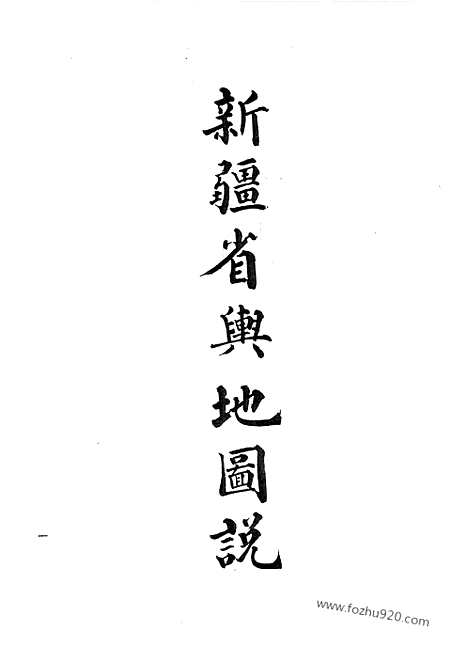 新疆省輿地圖説
一
www.fozhu920.com